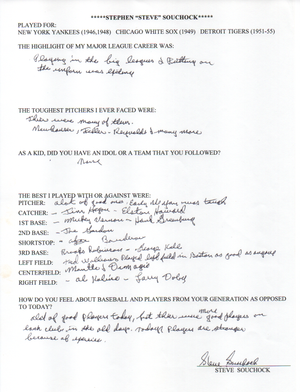 *****STEPHEN "STEVE" SOUCHOCK*****
PLAYED FOR:
NEW YORK YANKEES (1946,1948) CHICAGO WHITE SOX (1949) DETROIT TIGERS (1951-55)
THE HIGHLIGHT OF MY MAJOR LEAGUE CAREER WAS:
Playing in the big leagues & Putting on
the uniform was exciting
THE TOUGHEST PITCHERS I EVER FACED WERE:
There were many of them.
Newhouser, Feller - Reynolds & many more
AS A KID, DID YOU HAVE AN IDOL OR A TEAM THAT YOU FOLLOWED?
None
THE BEST I PLAYED WITH OR AGAINST WERE:
PITCHER: alot of good ones Early Wynn was tough
CATCHER: - Jim Hegan - Elston Howard
1ST BASE: - Mickey Vernon - Hank Greenberg
2ND BASE: - Joe Gordon
SHORTSTOP: - Lou Boudreau
3RD BASE: Brooks Robinson - George Kell
LEFT FIELD: Ted Williams Played left field in Boston as good as anyone
CENTERFIELD: Mantle & Dimaggio
RIGHT FIELD: - Al Kaline - Larry Doby
HOW DO YOU FEEL ABOUT BASEBALL AND PLAYERS FROM YOUR GENERATION AS OPPOSED
TO TODAY?
alot of good players today, but there were more good players on
each club in the old days. Todays players are stronger
because of
Steve Souchock
STEVE SOUCHOCK